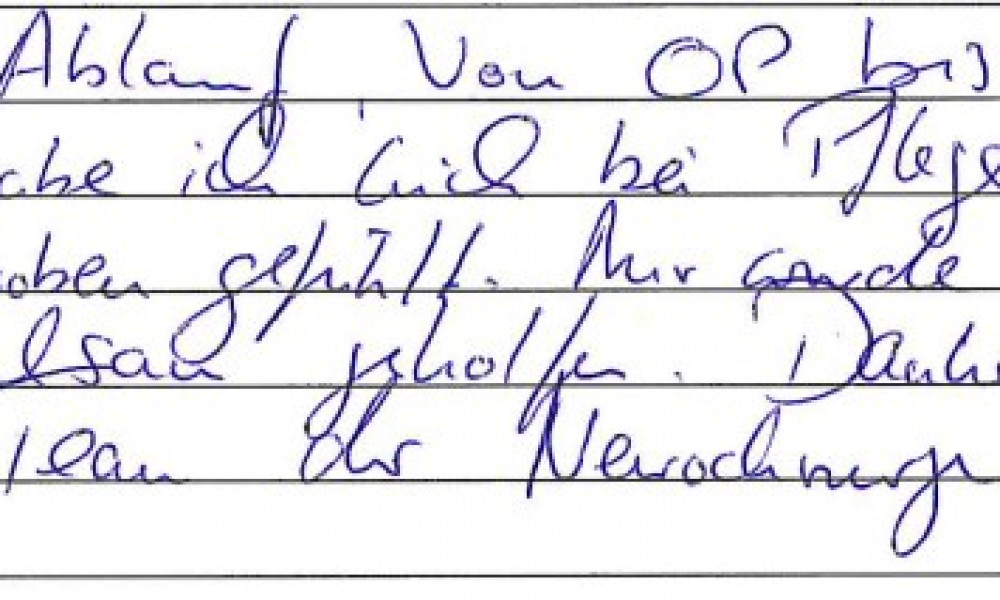 Ablauf von OP bis
abe ich mich bei Pflege
oben gefühlt. Mir wurde
lsam geholfen. Danke
Team der Neurochirurgi